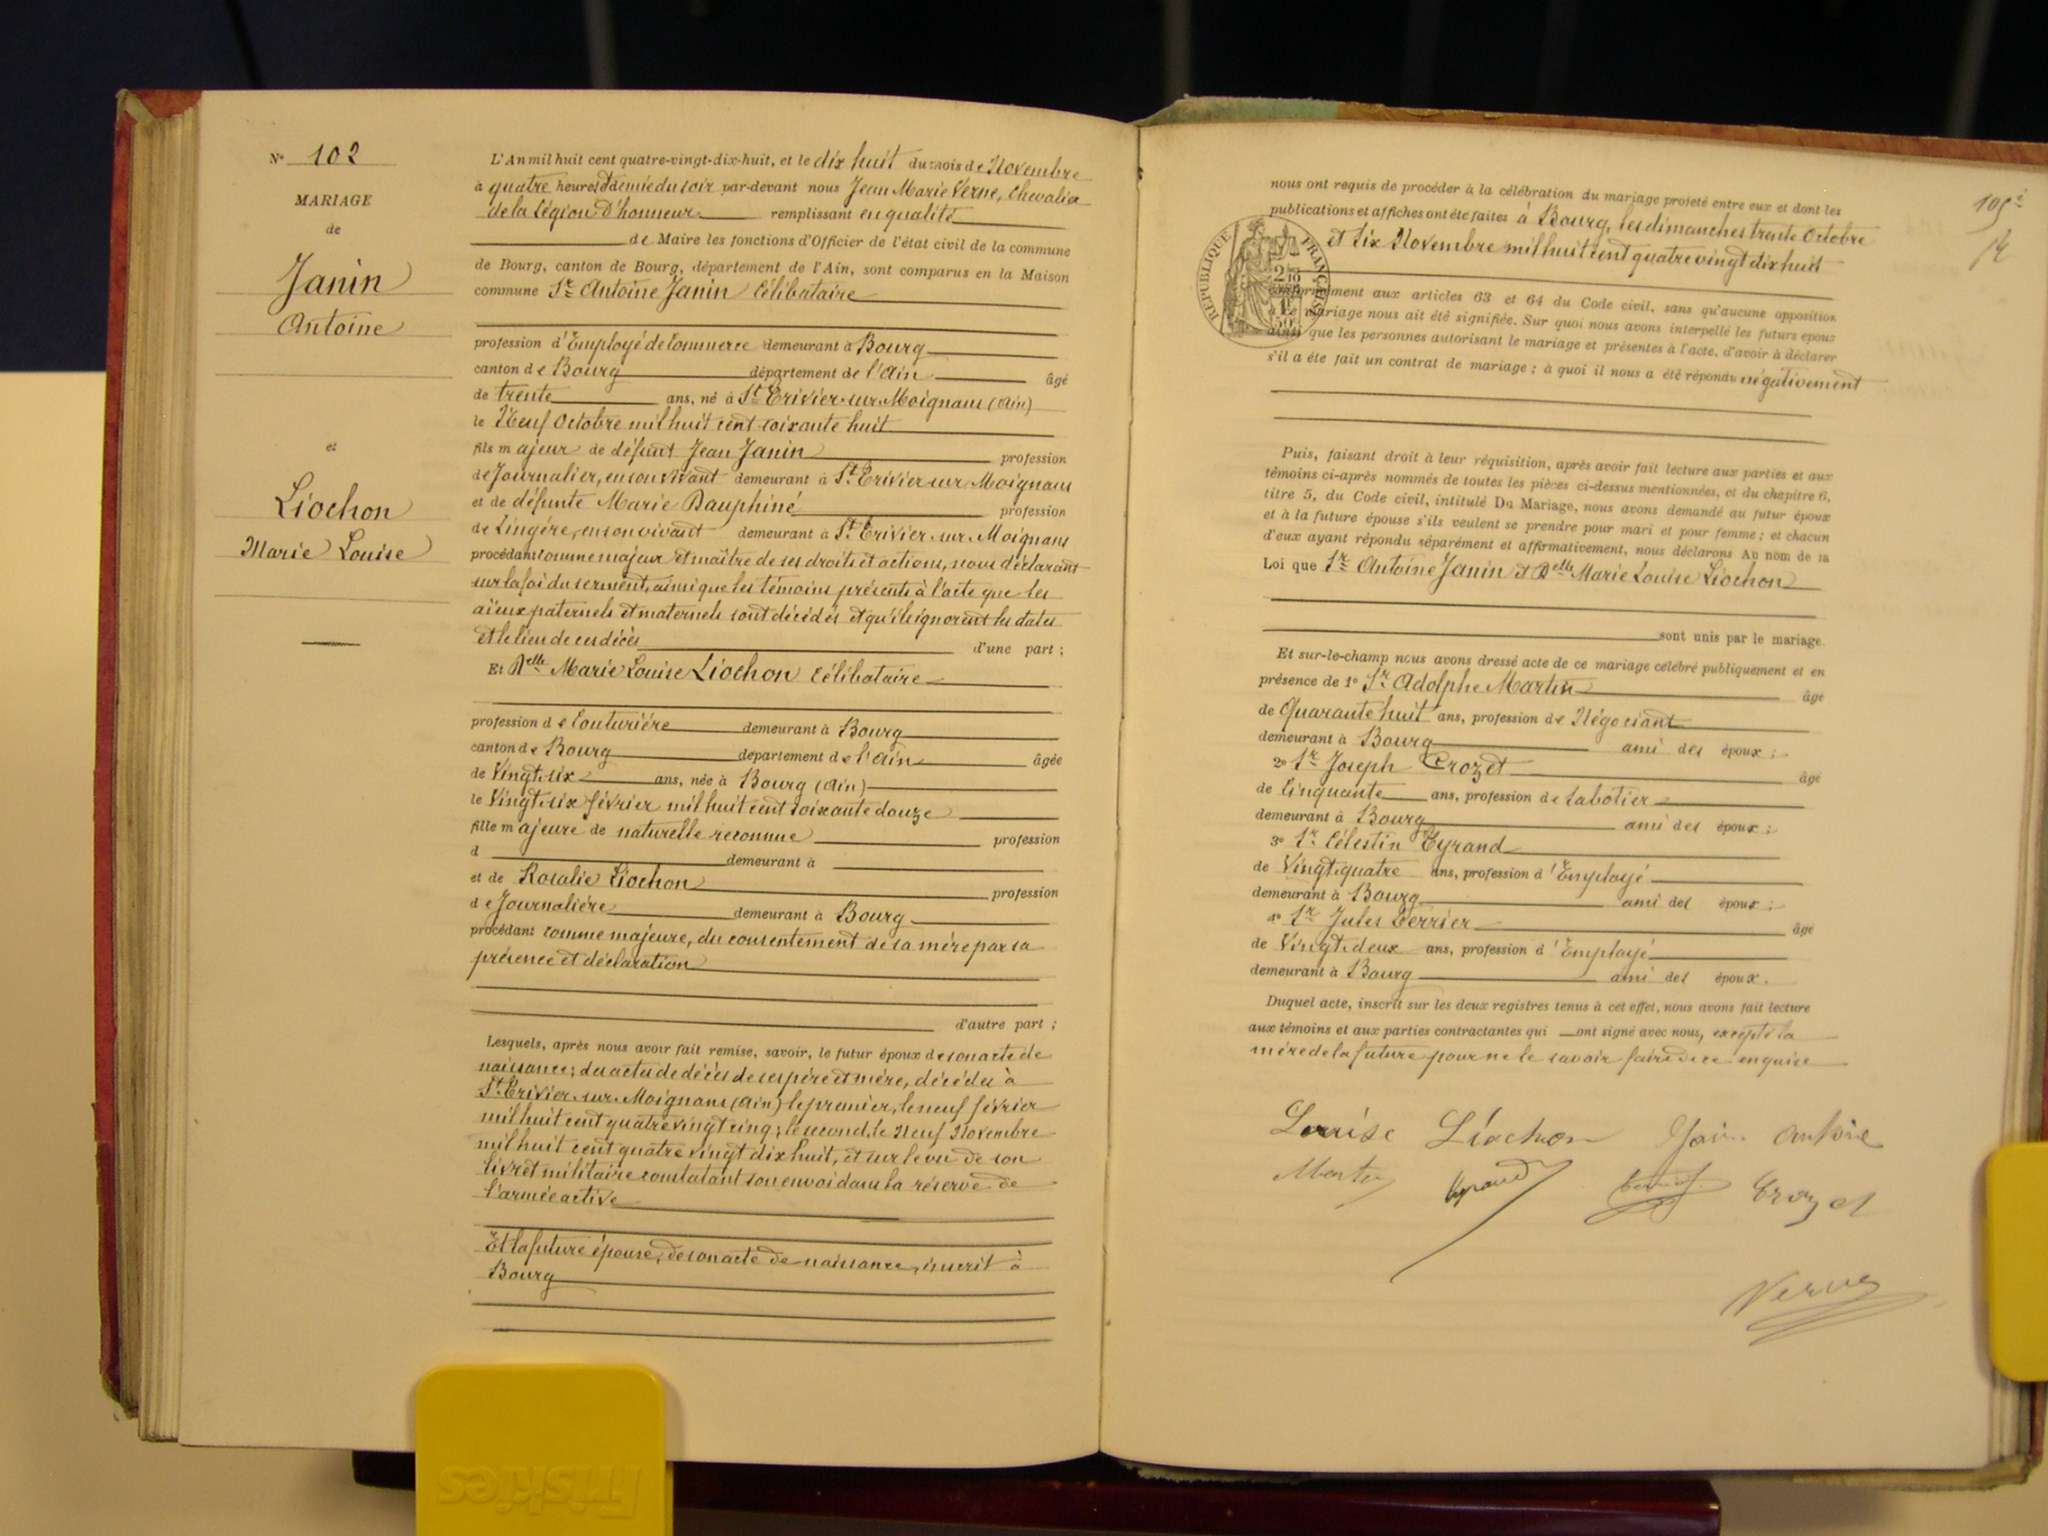 Nº 102
MARIAGE
de
Janin
Antoine
et
Liochon
Marie Louise
L'An mil huit cent quatre-vingt-dix-huit, et le dix huit du mois de Novembre
à quatre heures et demie du soir par-devant nous Jean Marie Verne, Chevalier
de la Légion D'honneur remplissant en qualité
de Maire les fonctions d'Officier de l'état civil de la commune
de Bourg, canton de Bourg, département de l'Ain, sont comparus en la Maison
commune Sr Antoine Janin Célibataire
profession d'Employé de Commerce demeurant à Bourg
canton de Bourg département de l'Ain âgé
de trente ans, né à St Trivier-sur-Moignans (Ain)
le Neuf Octobre mil huit cent soixante huit
fils majeur de défunt Jean Janin profession
de Journalier, en son vivant demeurant à St Trivier sur Moignans
et de défunte Marie Dauphiné profession
de Lingère, en son vivant demeurant à St Trivier sur Moignans
procédant comme majeur et maître de ses droits et actions, nous déclarant
sur la foi du serment, ainsi que les témoins présents à l'acte que les
aïeux paternels et maternels sont décédés et qu'ils ignorent les dates
et le lieu de ces décès d'une part ;
Et Delle Marie Louise Liochon Célibataire
profession de Couturière demeurant à Bourg
canton de Bourg département de l'Ain âgée
de Vingt six ans, née à Bourg (Ain)
le Vingt six février mil huit cent soixante douze
fille majeure de naturelle reconnue profession
d demeurant à
et de Rosalie Liochon profession
de Journalière demeurant à Bourg
procédant comme majeure, du consentement de sa mère par sa
présence et déclaration
d'autre part ;
Lesquels, après nous avoir fait remise, savoir, le futur époux de son acte de
naissance ; des actes de décès de ses père et mère, décédés à
St Trivier-sur-Moignans (Ain) le premier, le neuf février
mil huit cent quatre vingt cinq ; le second, le Neuf Novembre
mil huit cent quatre vingt dix huit, et sur le vu de son
livret militaire constatant son envoi dans la réserve de
l'armée active
Et la future épouse, de son acte de naissance, inscrit à
Bourg
105e
nous ont requis de procéder à la célébration du mariage projeté entre eux et dont les
publications et affiches ont été faites à Bourg, les dimanches trente Octobre
et six Novembre mil huit cent quatre vingt dix huit
RÉPUBLIQUE FRANÇAISE
conformément aux articles 63 et 64 du Code civil, sans qu'aucune opposition
à ce mariage nous ait été signifiée. Sur quoi nous avons interpellé les futurs époux
ainsi que les personnes autorisant le mariage et présentes à l'acte, d'avoir à déclarer
s'il a été fait un contrat de mariage ; à quoi il nous a été répondu négativement
Puis, faisant droit à leur réquisition, après avoir fait lecture aux parties et aux
témoins ci-après nommés de toutes les pièces ci-dessus mentionnées, et du chapitre 6,
titre 5, du Code civil, intitulé Du Mariage, nous avons demandé au futur époux
et à la future épouse s'ils veulent se prendre pour mari et pour femme ; et chacun
d'eux ayant répondu séparément et affirmativement, nous déclarons Au nom de la
Loi que Sr Antoine Janin et Delle Marie Louise Liochon
sont unis par le mariage.
Et sur-le-champ nous avons dressé acte de ce mariage célébré publiquement et en
présence de 1º Sr Adolphe Martin âgé
de Quarante huit ans, profession de Négociant
demeurant à Bourg ami des époux ;
2º Sr Joseph Crozet âgé
de Cinquante ans, profession de Sabotier
demeurant à Bourg ami des époux ;
3º Sr Célestin Tyrand
de Vingt quatre ans, profession d'Employé
demeurant à Bourg ami des époux ;
4º Sr Jules Terrier âgé
de Vingt deux ans, profession d'Employé
demeurant à Bourg ami des époux.
Duquel acte, inscrit sur les deux registres tenus à cet effet, nous avons fait lecture
aux témoins et aux parties contractantes qui ont signé avec nous, excepté la
mère de la future pour ne le savoir faire de ce enquise
Louise Liochon Janin Antoine
Martin Tyrand Terrier Crozet
Verne
friskies